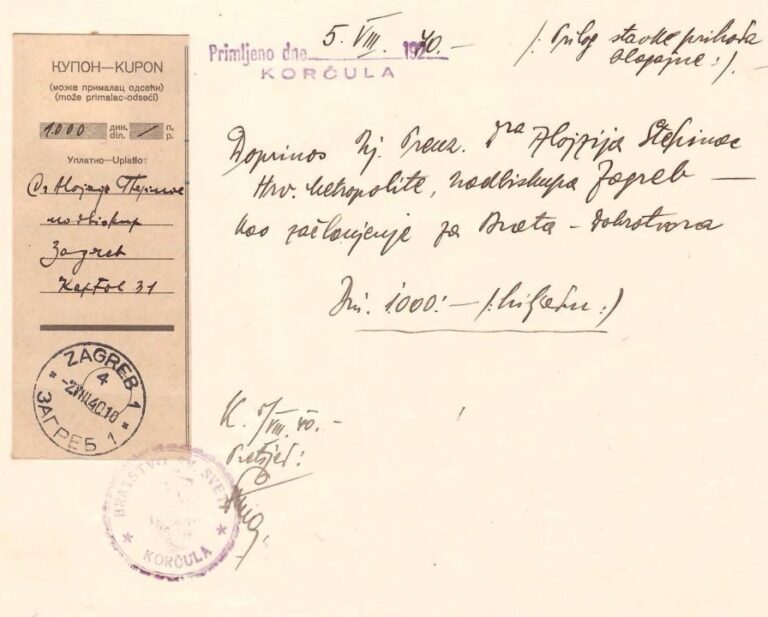 КУПОН—KUPON
(може прималац одсећи)
(može primalac-odseći)
1.000 дин. din. / п. p.
Уплатно-Uplatio:
Dr Alojzije Stepinac
nadbiskup
Zagreb
Kaptol 31
ZAGREB 1
4
-2.VIII.40.10
ЗАГРЕБ 1
Primljeno dne 5. VIII. 1940.—
KORČULA
/: Prilog stavke prihoda
blagajne :/.
Doprinos Nj. Preuz. dra Alojzija Stepinac
Hrv. metropolite, nadbiskupa Zagreb —
kao začlanjenje za Brata - Dobrotvora
Din. 1000:— /: hiljadu :/
K. 5/VIII. 40.—
Pretsjed:
BRATSTVO SV. SVETI
KORČULA